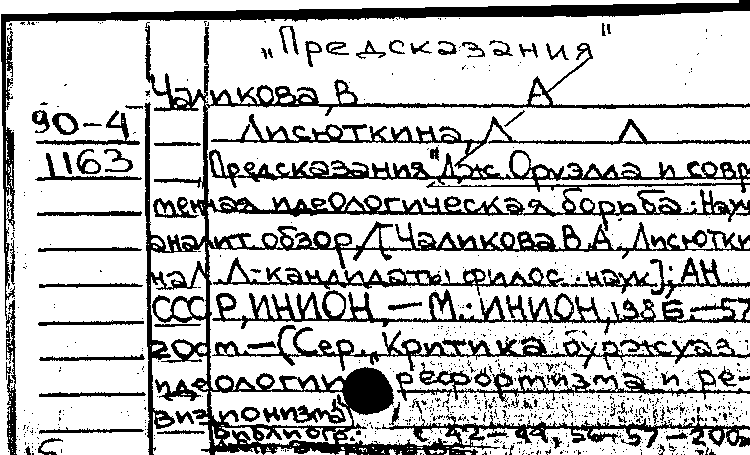 „Предсказания"
Чаликова, В А
90-4 Лисюткина, Л Л
1163 Предсказания "Дж. Оруэлла и совр
менная идеологическая борьба: Науч
аналит. обзор / [Чаликова В.А., Лисютки
на Л. Л.- кандидаты филос. наук]; АН
СССР, ИНИОН, — М.: ИНИОН, 1986.—57
200т.—(Сер. "Критика буржуаз.
идеологии, реформизма и ре-
визионизма"
Библиогр.: с 42-44, 54-57 — 200